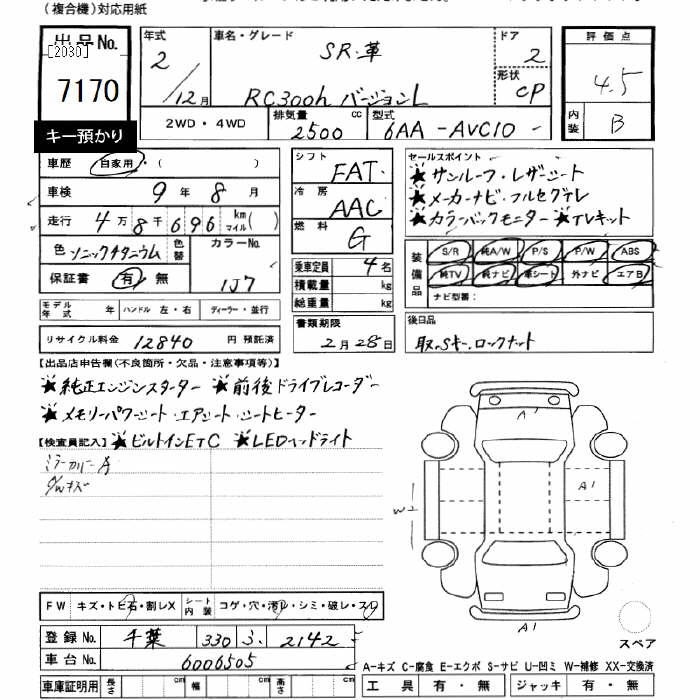 (複合機)対応用紙
出品No.
[2030]
7170
キー預かり
年式 2/12月
車名・グレード SR・革
RC300h バージョンL
ドア 2
形状 CP
評価点 4.5
内装 B
2WD・4WD
排気量 2500 cc
型式 6AA-AVC10
車歴 自家用・( )
車検 9年 8月
走行 4万 8千 696 km マイル( )
色 ソニックチタニウム
色替
カラーNo. 1J7
保証書 有・無
モデル年式 年
ハンドル 左・右
ディーラー・並行
リサイクル料金 12840 円 預託済
シフト FAT
冷房 AAC
燃料 G
乗車定員 4名
積載量 kg
総重量 kg
書類期限 2月28日
セールスポイント
★サンルーフ・レザーシート
★メーカーナビ・フルセグTV
★カラーバックモニター ★TVキット
装備品
S/R 純A/W P/S P/W ABS
純TV 純ナビ 革シート 外ナビ エアB
ナビ型番:
後日品
取・Sキー・ロックナット
【出品店申告欄(不良箇所・欠品・注意事項等)】
★純正エンジンスターター ★前後ドライブレコーダー
★メモリーパワーシート・エアシート・シートヒーター
【検査員記入】 ★ビルトインETC ★LEDヘッドライト
ミラーカバーA
G/Wキズ
A1
A1
W1
A1
スペア
FW キズ・トビ石・割レX
シート内装 コゲ・穴・汚レ・シミ・破レ・スレ
登録No. 千葉 330 ろ 2142
車台No. 6006505
車庫証明用 長さ cm 幅 cm 高さ cm
A-キズ C-腐食 E-エクボ S-サビ U-凹ミ W-補修 XX-交換済
工具 有・無 ジャッキ 有・無